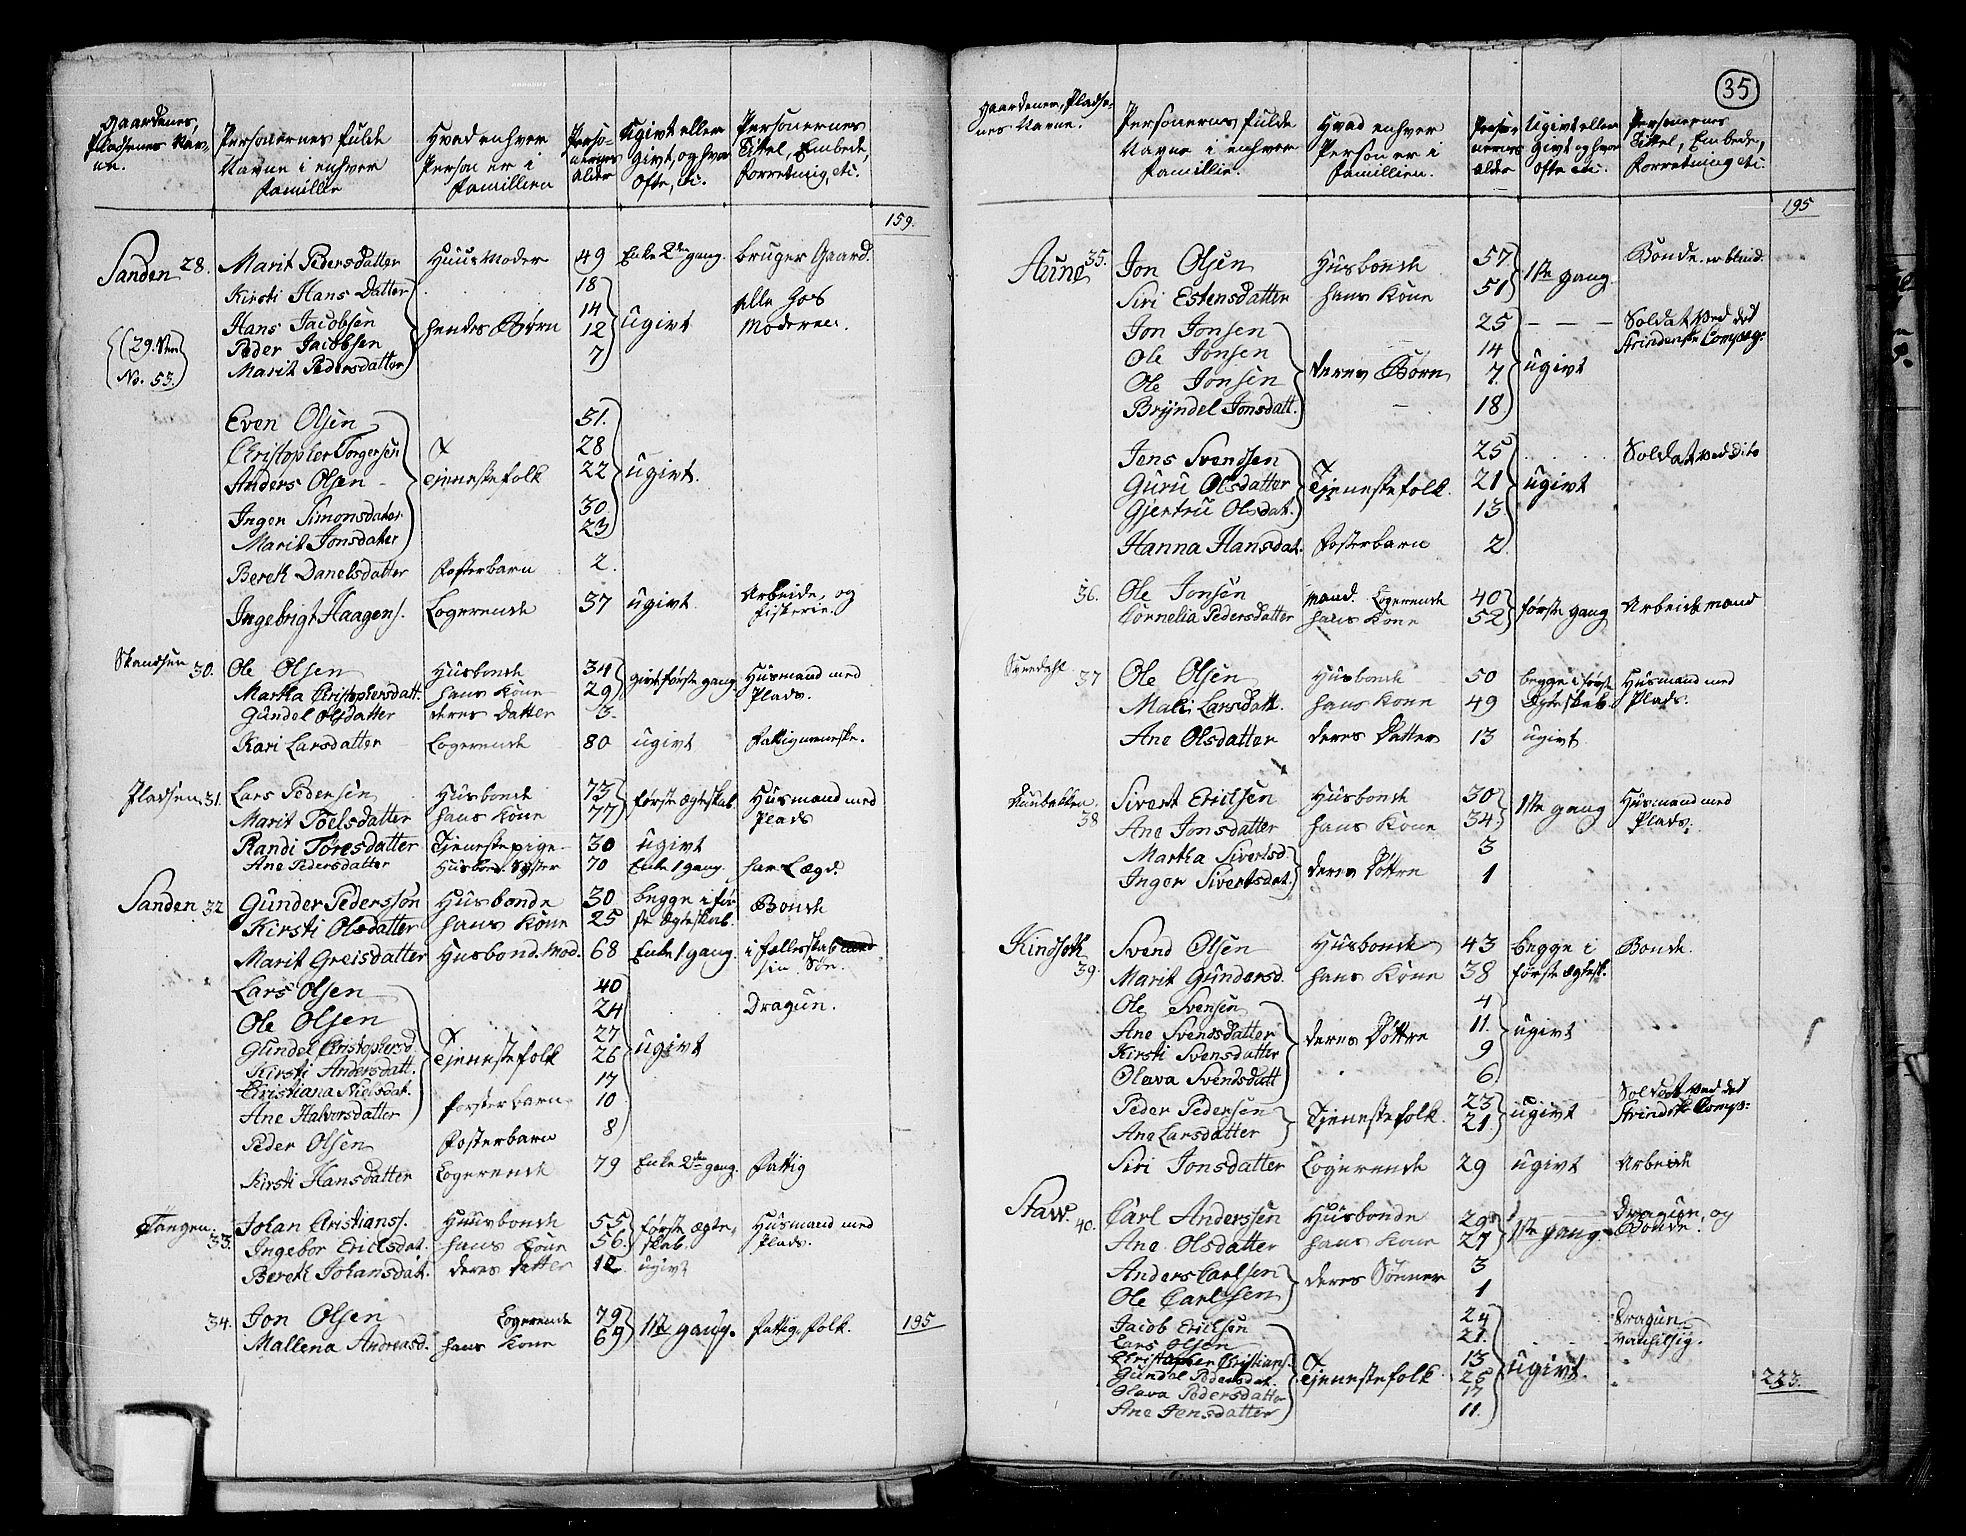 Gaardenes, Pladsenes Navne.
Personernes fulde Navne i enhver Familie
Hvad enhver Person er i Famillien
Personernes Alder
Ugivt eller Givt, og hvor Ofte, etc.
Personernes Tittel, Embede, Forretning, etc.
159.
Sanden 28. Marit Pedersdatter Huus Moder 49 Enke 2den gang. bruger Gaard.
Kirsti Hans Datter 18
Hans Jacobsen 14
Peder Jacobsen hendes Børn 12 ugivt alle hos Moderen.
Marit Pedersdatter 7
(29. No. 53.)
Even Olsen 31.
Christopher Torgersen 28
Anders Olsen Tjenestefolk 22 ugivt.
Inger Simonsdater 30
Marit Jonsdater 23
Bereth Danelsdatter Fosterbarn 2.
Ingebrigt Haagens. Logerende 37 ugivt Arbeide, og fiskerie.
Skandsen 30. Ole Olsen Husbonde 34 givt første gang Husmand med Plads.
Martha Christophersdatt. hans Kone 29
Gundel Olsdatter deres Datter 3.
Kari Larsdatter Logerende 80 ugivt Fattigmeneske.
Pladsen 31. Lars Pedersen Husbonde 73 første Ægteskab Husmand med Plads
Marit Toelsdatter hans Kone 77
Randi Toresdatter Tjenestepige 30 ugivt
Ane Pedersdatter Husbond. Syster 70 Enke 1 gang. har Lægd.
Sanden 32 Gunder Pederssøn Husbonde 30 begge i første Ægteskab. Bonde
Kirsti Olsdatter hans Kone 25
Marit Greisdatter Husbond. Mod. 68 Enke 1 gang. i fællesskab med sin Søn.
Lars Olsen 40
Ole Olsen 24 Dragun.
Gundel Christophersd 27
Kirsti Andersdatt. Tjenestefolk 26 ugivt
Christiana Nielsdat. 17
Ane Halvorsdatter Fosterbarn 10
Peder Olsen Fosterbarn 8
Kirsti Hansdatter Logerende 79 Enke 2den gang. Fattig
Tangen. 33. Johan Christians. Huusbonde 55 første Ægteskab. Husmand med Plads.
Ingebor Ericksdat. hans Kone 56.
Bereth Johansdat. deres Datter 12 ugivt
34. Jon Olsen Logerende 79 1ste gang. Fattig folk.
Mallena Andreasd. hans Kone 69
195
35
Gaardenes, Pladsenes Navne.
Personernes fulde Navne i enhver Famillie.
Hvad enhver Person er i Famillien.
Personernes Alder
Ugivt eller Givt og hvor Ofte etc.
Personernes Tittel, Embede, Forretning etc.
195
Aune 35. Jon Olsen Husbonde 57 1ste gang. Bonde. er blind.
Siri Estensdatter hans Kone 51
Jon Jonsen 25 Soldat ved det Strindenske Compag:
Ole Jonsen 14
Ole Jonsen deres Børn 7. ugivt
Bryndel Jonsdatt. 18
Jens Svendsen 25 Soldat ved dito
Guru Olsdatter Tjenestefolk. 21 ugivt
Gjertru Olsdat. 13
Hanna Hansdat. Fosterbarn 2
36. Ole Jonsen mand. Logerende 40 første gang Arbeidsmand
Cornelia Pedersdatter hans Kone 52
Svendahl 37 Ole Olsen Husbonde 50 begge i første Ægteskab. Husmand med Plads.
Mali Larsdatt. hans Kone 49
Ane Olsdatter deres Datter 13 ugivt
38 Sivert Ericksen Husbonde 30 1ste gang Husmand med Plads.
Ane Jonsdatter hans Kone 34
Martha Sivertsd. 3
Inger Sivertsdat. deres Døttre 1
39. Svend Olsen Husbonde 43 begge i første Ægtesk. Bonde.
Marit Gundersd. hans Kone 38
Ole Svensen 4
Ane Svendsdatter deres Døttre 11. ugivt
Kirsti Svensdatter 9
Olava Svendsdatt 6.
Peder Pedersen Tjenestefolk 23 ugivt Soldat ved det Strindske Comp:
Ane Larsdatter 21
Siri Jonsdatter Logerende 29 ugivt Arbeide
Staw. 40. Carl Anderssen Husbonde 29 1ste gang Dragun, og Bonde.
Ane Olsdatter hans Kone 27
Anders Carlsen deres Sønner 3
Ole Carlssen 1
Jacob Ericksen 24 Dragun
Lars Olsen 21. Vanhelsig.
Christopher Christians. 13
Gundel Pedersdat. Tjenestefolk 25 ugivt.
Olava Pedersdatter 17
Ane Jensdatter 11.
233.